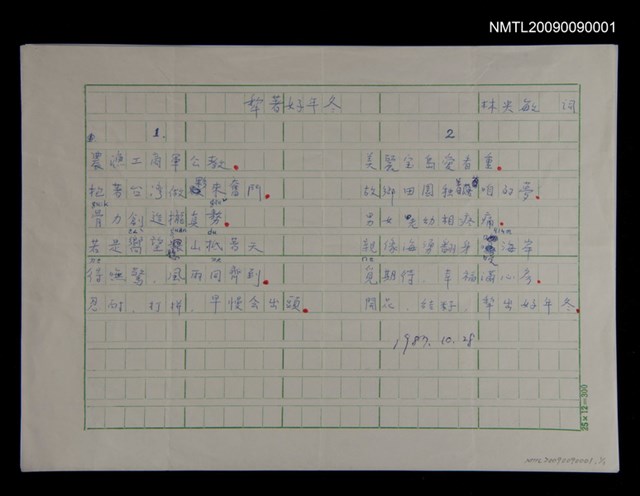 NMTL20090090001
犂著好年冬 林央敏 詞
1.
農漁工商軍公教。
抱著台灣做來奮鬥。
骨力創造攏真勞。
若是嚮望山抵著天
待嘸驚,風雨同齊到。
忍耐,打拼,早慢會出頭。
2
美麗宝島愛看重。
故鄉田園種咱的夢。
男女老幼相疼痛。
親像海湧翻身海岸
見期待,幸福滿心房。
開花,結籽,犂出好年冬。
1987.10.28
25×12=300
NMTL20090090001